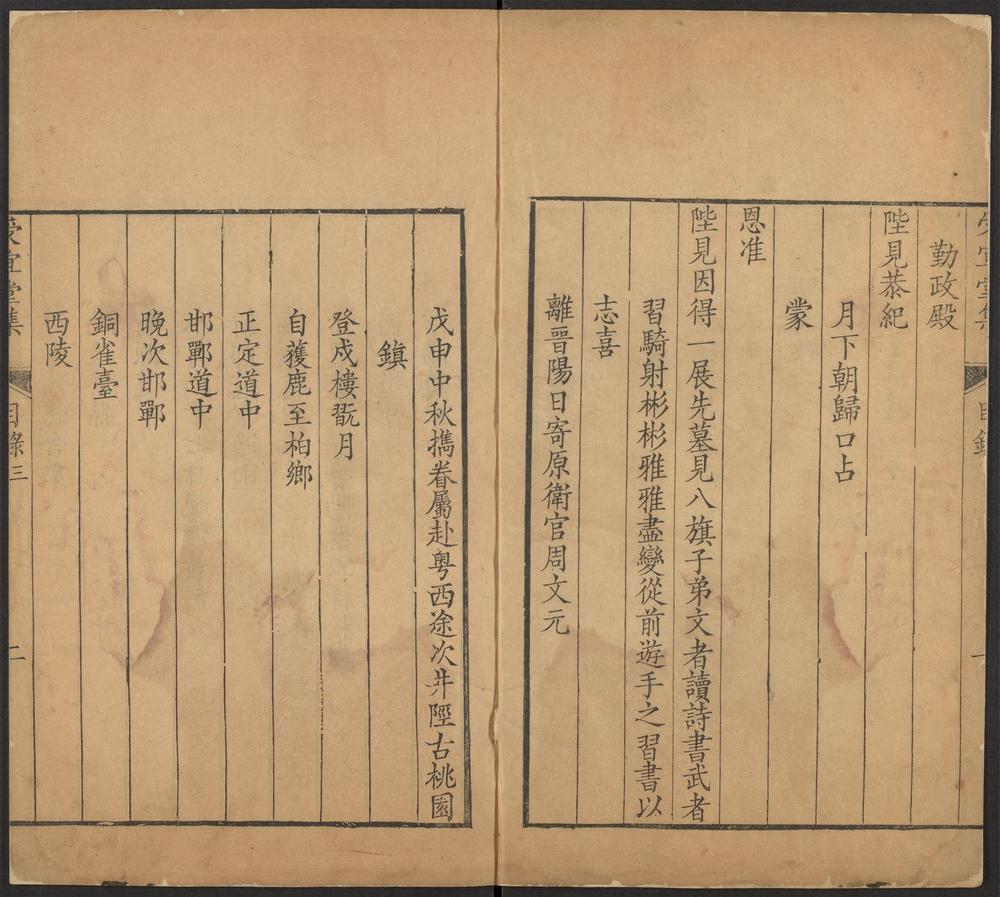 勤政殿
陛見恭紀
月下朝歸口占
蒙
恩准
陛見因得一展先墓見八旗子弟文者讀詩書武者
習騎射彬彬雅雅盡變從前遊手之習書以
志喜
離晉陽日寄原衛官周文元
戊申中秋擕眷屬赴粤西途次井陘古桃園
鎮
登戍樓翫月
自獲鹿至栢鄉
正定道中
邯鄲道中
晚次邯鄲
銅雀臺
西陵
受宜堂集 目錄三 二